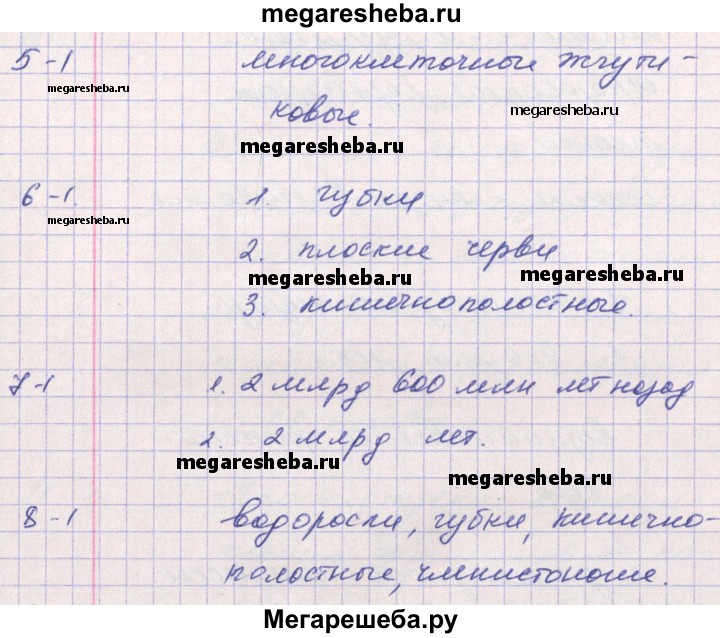 megaresheba.ru
5-1 многоклеточные жгути-
megaresheba.ru
megaresheba.ru
ковые.
megaresheba.ru
6-1. 1. губки
megaresheba.ru
2. плоские черви
megaresheba.ru
megaresheba.ru
3. кишечнополостные.
7-1 1. 2 млрд 600 млн лет назад
2. 2 млрд лет.
megaresheba.ru
megaresheba.ru
8-1 водоросли, губки, кишечно-
полостные, членистоногие.
Мегарешеба.ру